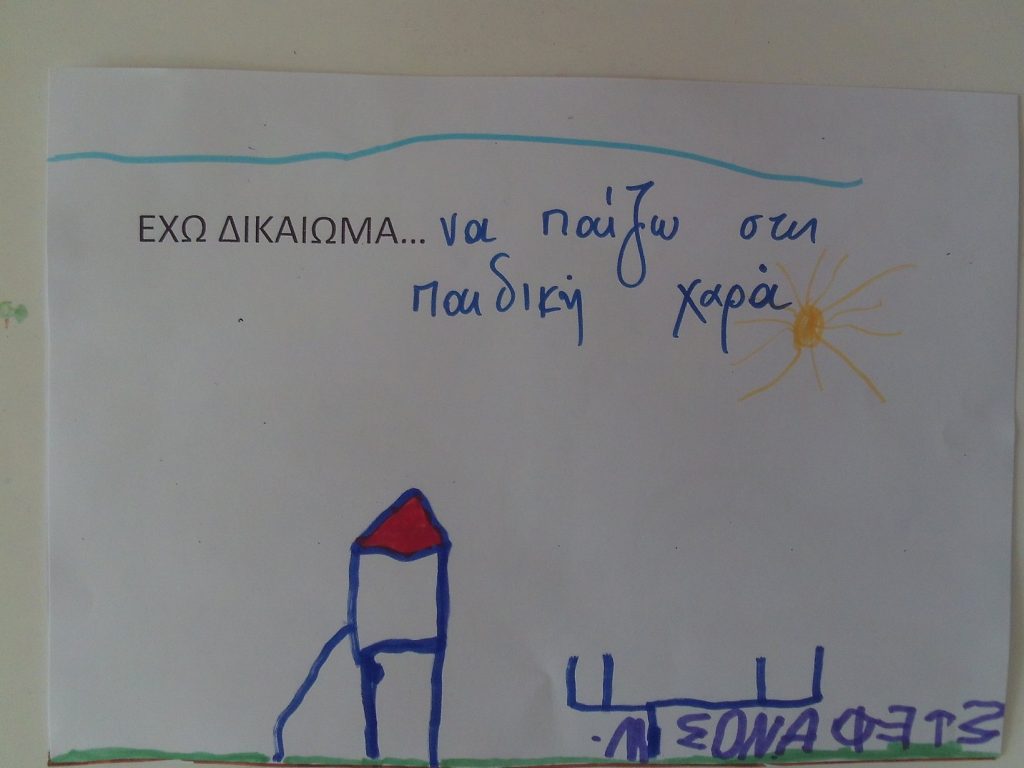 ΕΧΩ ΔΙΚΑΙΩΜΑ... να παίζω στη
παιδική χαρά
ΣΤΕΦΑΝΟΣ Μ.